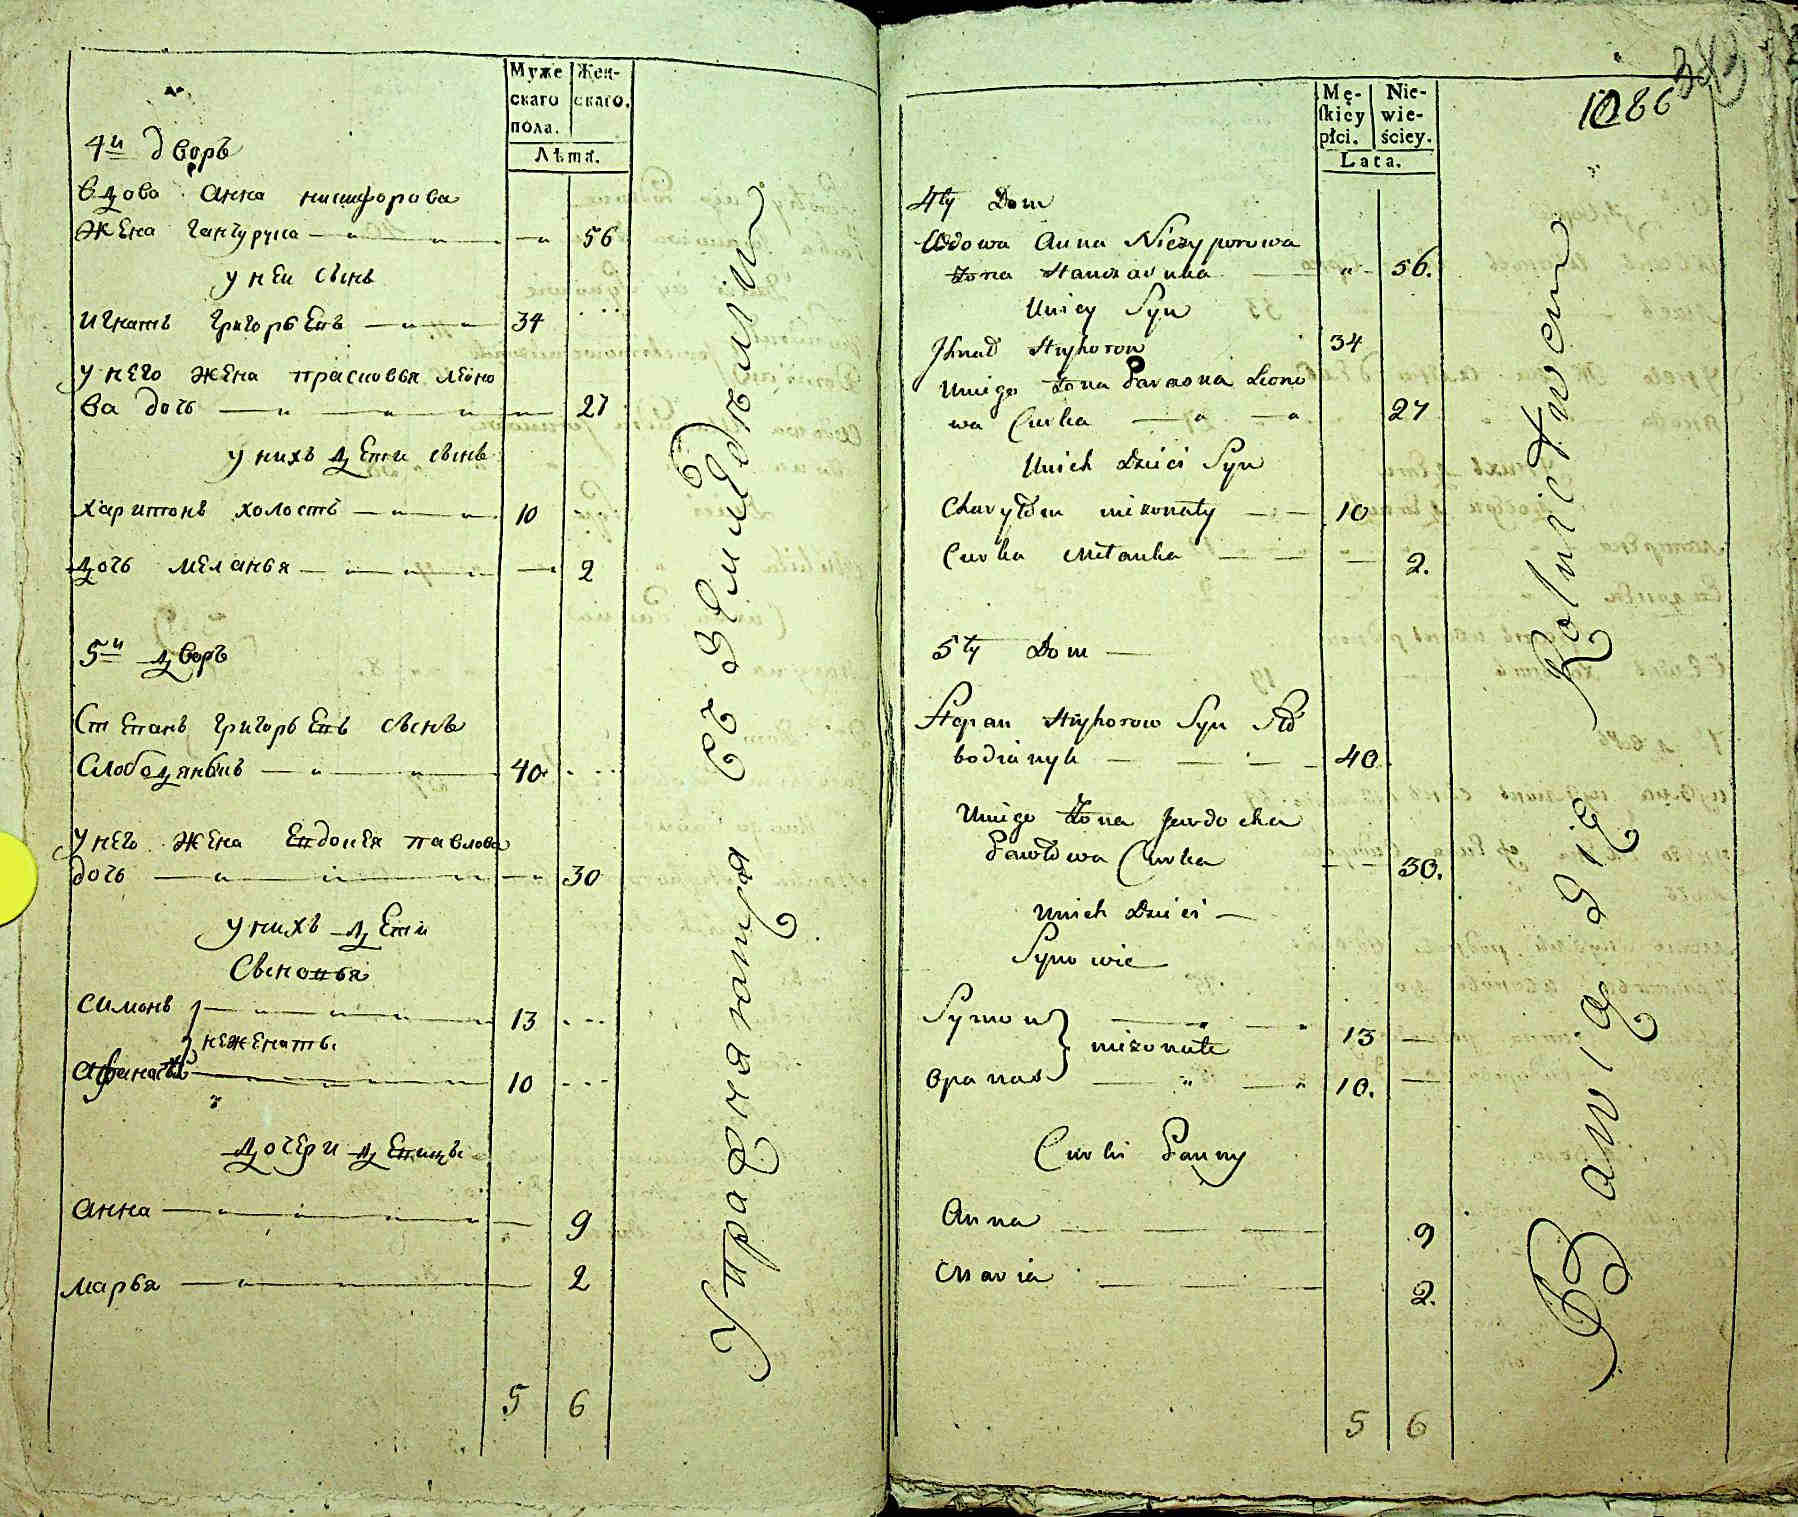 Муже
скаго
пола.
Жен-
скаго.
Лѣта.
4й дворъ
вдова Анна никифорова
жена ганчурука 56
у неи сынъ
игнатъ григорьевъ 34
у него жена прасковья леоно
ва дочь 27
у нихъ дети сынъ
харитонъ холостъ 10
дочь меланья 2
5й дворъ
Степанъ григорьевъ сынъ
Слободяныкъ 40
у него жена Евдокея павлова
дочь 30
у нихъ дети
Сыновья
Симонъ 13
нежснаты
Афанасъ 10
дочери девицы
анна 9
марья 2
5 6
Упражняютца въ земледелии
Mę-
ſkiey
płci.
Nie-
wie-
ściey.
Lata.
1086
4ty Dom
Wdowa Anna Niczyporowa
żona Hanczaruka 56.
Uniey Syn
Jhnat Hryhorow 34
Uniego żona Paraska Leono
wa Curka 27
Unich Dzieci Syn
Charyton nieżonaty 10
Curka Melanka 2.
5ty Dom
Stepan Hryhorow Syn Sło
bodianyk 40
Uniego żona Jewdocha
Pawłowa Curka 30.
Unich Dzieci
Synowie
Symon 13
nieżonate
Opanas 10.
Curki Panny
Anna 9
Maria 2.
5 6
Bawią się Rolnictwem